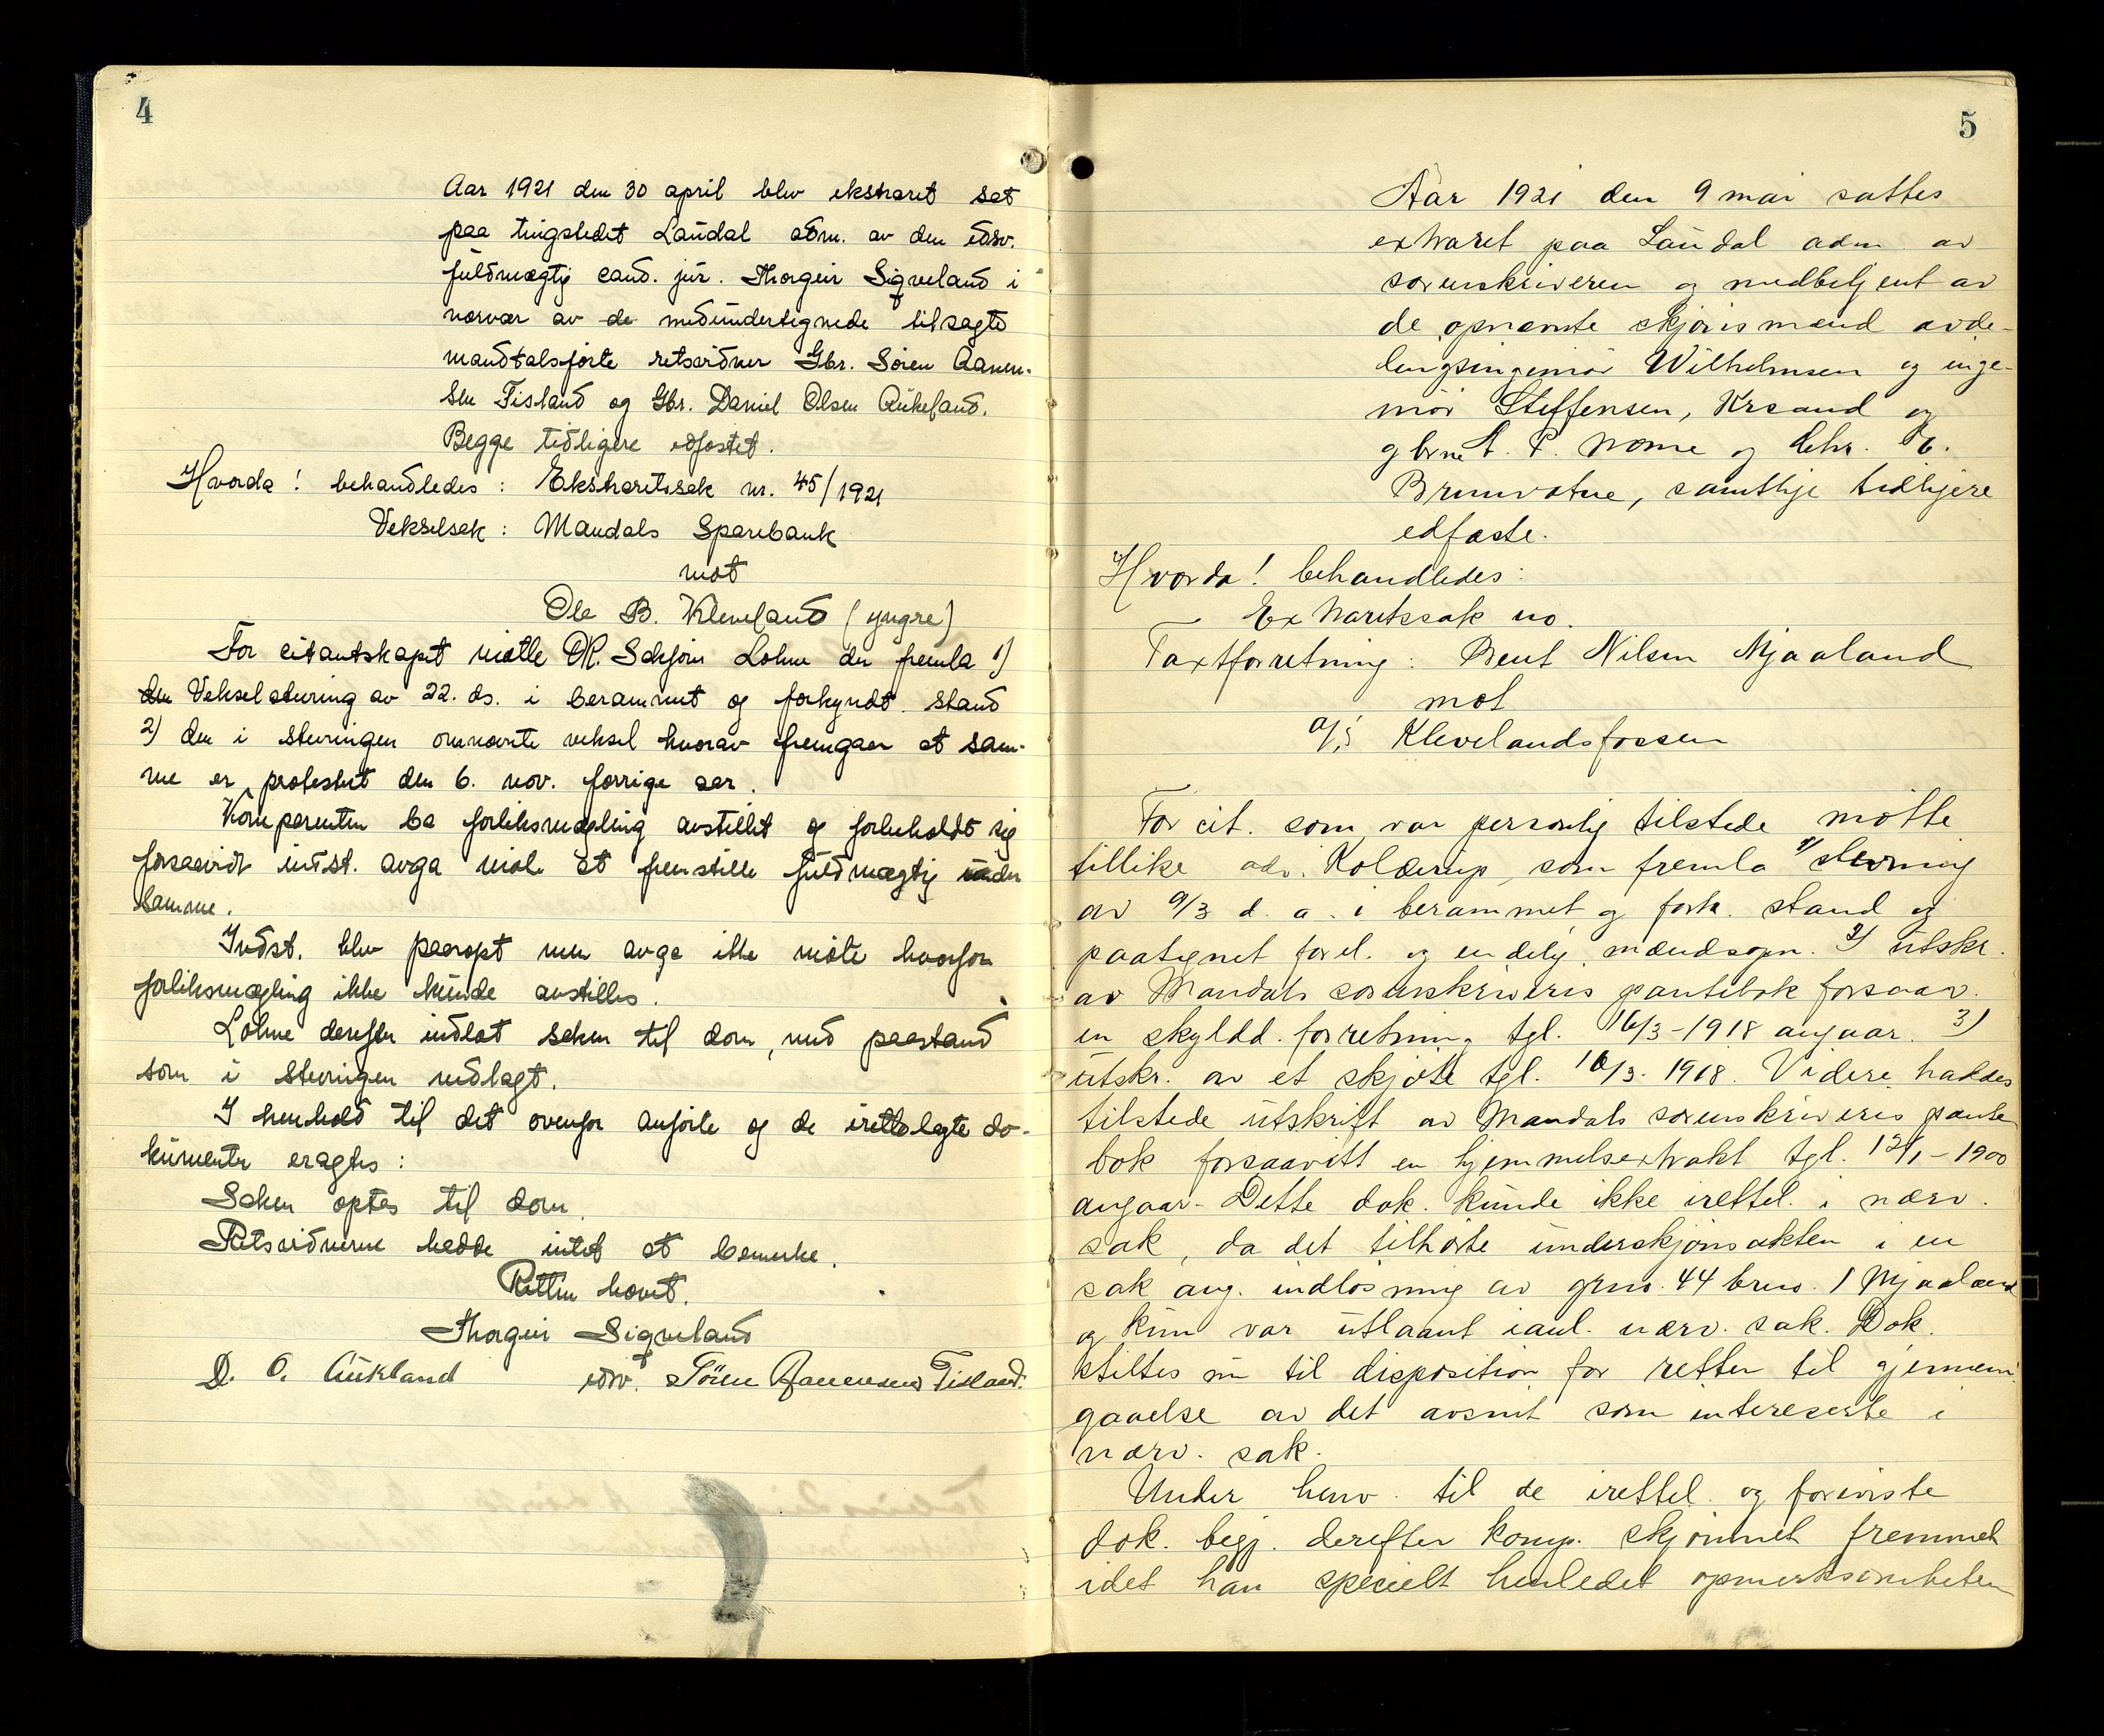 4
Aar 1921 den 30 april blev ekstraret sat
paa tingstedet Laudal adm. av den edsv.
fuldmægtig cand. jur. Thorgeir Sigveland i
nærvær av de medundertegnede tilsagte
mandtalsførte retsvidner Gbr. Søren Aanen-
sen Fisland og Gbr. Daniel Olsen Aukland.
Begge tidligere edfæstet.
Hvorda! behandledes: Ekstraretssak nr. 45/1921
Vekselsak: Mandals Sparebank
mot
Ole B. Kleveland (yngre)
For citantskapet møtte OR. Lohne der fremla 1)
den Vekselstevning av 22. ds. i berammet og forkyndt stand
2) den i stevningen omnævnte veksel hvorav fremgaar at sam-
me er protestert den 6. nov. forrige aar.
Komparenten ba forliksmægling avstillet og forbeholdt sig
forsaavidt indst. avga møte at fremstille fuldmægtig under
samme.
Indst. blev paaropt men avga ikke møte hvorfor
forliksmægling ikke kunde avstilles.
Lohne derefter indlot saken til dom, med paastand
som i stevningen nedlagt.
I henhold til det ovenfor anførte og de irettelagte do-
kumenter eragtes:
Saken optas til dom.
Retsvidnerne hadde intet at bemerke.
Retten hævet.
Thorgeir Sigveland
D. O. Aukland edsv. Sören Aanensen Fisland.
5
Aar 1921 den 9 mai sattes
extraret paa Laudal adm av
sorenskriveren og medbetjent av
de opnævnte skjønsmænd avde-
lingsingeniør Wilhelmsen og inge-
niør Steffensen, Krsand og
gbrne A. P. Nome og Chr. G.
Brunvatne, samtlige tidligere
edfæste.
Hvorda! behandledes:
Extraretssak no.
Taxtforretning: Bent Nilsen Mjaaland
mot
A/S Klevelandsfossen
For cit. som var personlig tilstede møtte
tillike adv. Kolderup, som fremla 1) stevning
av 9/3 d. a. i berammet og fork. stand og
paategnet forel. og endelig mændsopn. 2) utskr.
av Mandals sorenskriveris pantebok forsaav.
en skyldd. forretning tgl. 16/3-1918 angaar. 3)
utskr. av et skjøte tgl. 16/3. 1918. Videre haddes
tilstede utskrift av Mandals sorenskriveris pante
bok forsaavitt en hjemmelsextrakt tgl. 12/1-1900
angaar. Dette dok. kunde ikke irettel. i nærv.
sak, da det tilhørte underskjønsakten i en
sak ang. indløsning av grno. 44 brno. 1 Mjaaland
og kun var utlaant i anl. nærv. sak. Dok.
stiltes nu til disposition for retten til gjennem-
gaaelse av det avsnit som intereserte i
nærv. sak.
Under henv. til de irettel. og foreviste
dok. begj. derefter komp. skjønnet fremmet
idet han specielt henledet opmerksomheten